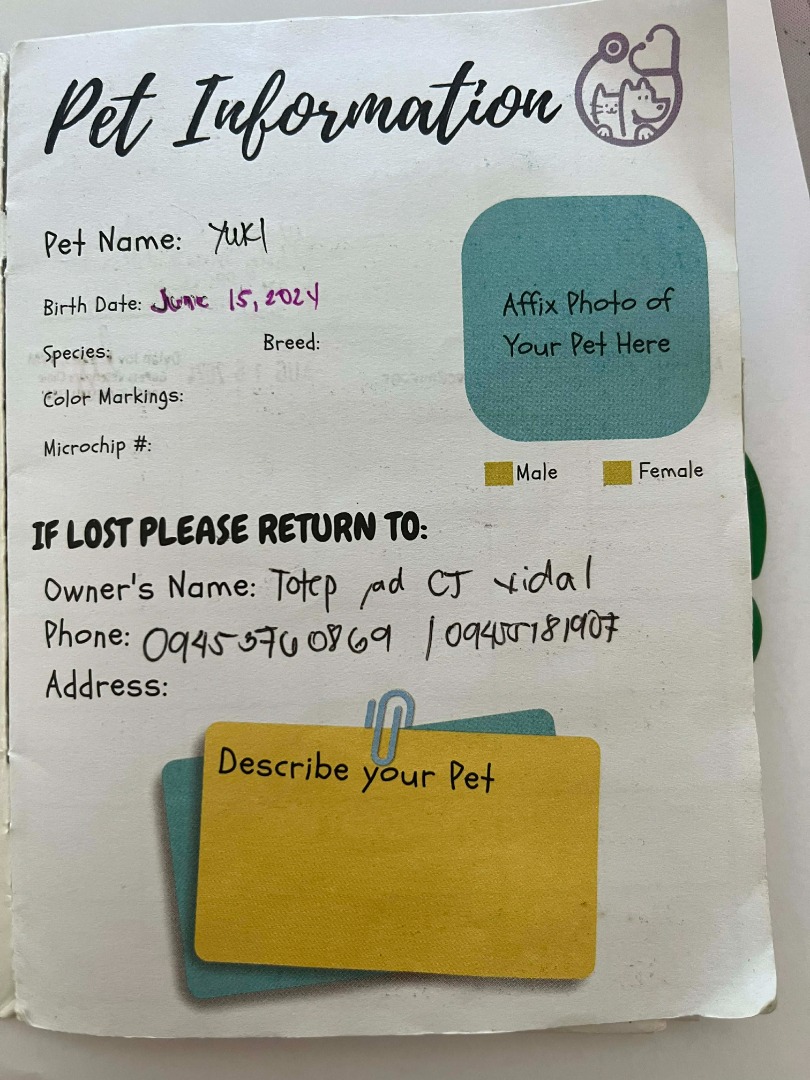 Pet Information
Pet Name: YUKI
Birth Date: June 15, 2024
Affix Photo of
Your Pet Here
Species:
Breed:
Color Markings:
Microchip #:
Male
Female
IF LOST PLEASE RETURN TO:
Owner's Name: Totep CJ Vidal
Phone: 09453760869 |
Address:
Describe your Pet